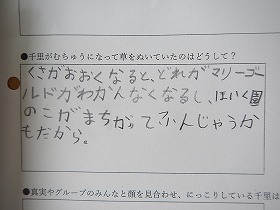 ●千里がむちゅうになって草をぬいていたのはどうして？
くさがおおくなると、どれがマリーゴ
ルドがわかんなくなるし、ほいく園
のこがまちがってふんじゃうか
もだから。
●真実やグループのみんなと顔を見合わせ、にっこりしている千里は